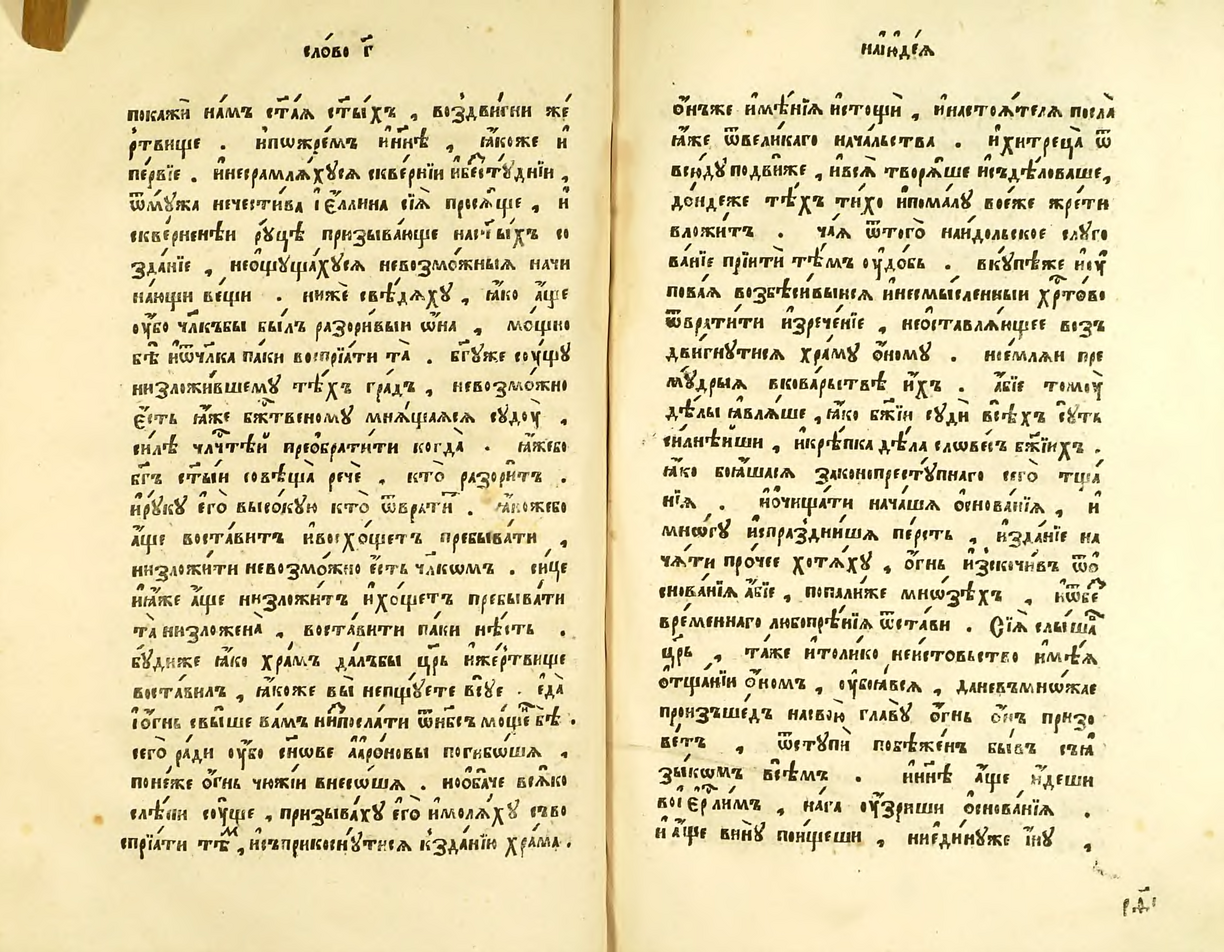 сло́во г҃
пока́жи на́мъ ст҃ая ст҃ы́хъ , воздви́гни же́
ртвище . ипѡжре́мъ и҆ нн҃ѣ , ꙗ҆́коже и҆
пе́рвїе . и҆несрамлѧ́хꙋсѧ скве́рнїи и҆бестꙋ́днїи ,
ѿмꙋ́жа нечести́ва і҆є҆́ллина сїѧ̀ просѧ́ще , и҆
скверненѣ́и рꙋцѣ̀ призыва́юще наст҃ы́хъ со
зда́нїе , неѡщꙋща́хꙋсѧ невозмо́жныѧ начи
на́ющи ве́щи . нижѐ свѣ́дѧхꙋ , ꙗ҆́ко а҆́ще
ᲂу҆́бо чл҃къбы бы́лъ разори́выи ѡ҆на̀ , мо́щно
бѣ̀ и҆ѿчл҃ка па́ки воспрїѧ́ти та̀ . бг҃ꙋже сꙋ́щꙋ
низложи́вшемꙋ тѣ́хъ гра́дъ , невозмо́жно
є҆́сть ꙗ҆́же бж҃твеномꙋ мнѧ́щаѧсѧ сꙋдꙋ̀ ,
си́лѣ чл҃чтѣ́й преѡбрати́ти когда̀ . ꙗ҆́жебо
бг҃ъ ст҃ы́и совѣща̀ речѐ , кто̀ разори́тъ .
и҆рꙋ́кꙋ є҆го̀ высо́кꙋю кто̀ ѿврати́ . ꙗ҆́коже́бо
а҆́ще воста́витъ и҆восхо́щетъ пребыва́ти ,
низложи́ти невозмо́жно є҆́сть чл҃кѡмъ . си́це
и҆ꙗ҆́же а҆́ще низложи́тъ и҆хо́щетъ пребыва́ти
та̀ низложена̀ , воста́вити па́ки нѣ́сть .
бꙋ́диже ꙗ҆́ко хра́мъ да́лъбы цр҃ь и҆же́ртвище
воста́вилъ , ꙗ҆́коже вы̀ непщꙋ́ете всꙋ́е . є҆да̀
і҆ѻ҆́гнь свы́ше ва́мъ ни́спосла́ти ѿнб҃съ мо́щє бѣ̀ .
сего̀ ра́ди ᲂу҆́бо сн҃ове а҆аро́новы погибѡ́шѧ ,
поне́же ѻ҆́гнь чюжі́и внесѡ́шѧ . но҆ѻба́че всѧ́ко
слѣ́пи сꙋ́ще , призыва́хꙋ є҆го̀ и҆молѧ́хꙋ съво
спрїѧ́ти тѣ́м , и҆съприкоснꙋ́тисѧ кзда́нїю хра́ма .
наі҆ю҆де́ѧ
ѻ҆́нъже и҆мѣ́нїѧ и҆стощѝ , и҆настоѧ́телѧ посла̀
ꙗ҆́же ѿвели́каго нача́льства . и҆хитреца̀ ѿ
всю́дꙋ подви́же , и҆всѧ̀ творѧ́ше и҆съдѣ́ловаше,
до́ндеже тѣ́хъ ти́хо и҆пома́лꙋ воє́же жре́ти
вложи́тъ . ча́ѧ ѿтого̀ наи҆́дольское слꙋго
ва́нїе прїитѝ тѣ́мъ ᲂу҆до́бь . вкꙋ́пѣже и҆ᲂу҆
пова́ѧ возбѣси́выисѧ и҆несмы́сленныи хр҃то́во
ѿврати́ти и҆зрече́нїе , неѡставлѧ́ющее воз
дви́гнꙋтисѧ хра́мꙋ ѻ҆́номꙋ . но́емлѧи пре
мꙋ́дрыѧ вкова́рьствѣ и҆́хъ . а҆́бїе томꙋ̀
дѣ́лы ꙗ҆влѧ́ше , ꙗ҆́ко бж҃їи сꙋдѝ всѣ́хъ сꙋ́ть
силнѣ́йши , и҆крѣ́пка дѣ́ла слове́съ бж҃їихъ .
ꙗ҆́ко боѧ́шасѧ законопрестꙋ́пнаго сего̀ тща
нїѧ . и҆ѡчища́ти нача́шѧ ѻ҆снова́нїѧ , и҆
мно́гꙋ и҆спраздни́шѧ пе́рсть , и҆зда́нїе на
чѧ́ти про́чее хотѧ́хꙋ , ѻ҆́гнь и҆зскочи́въ ѿѻ
снова́нїѧ а҆́бїе , попали́же мнѡ́зѣхъ , и҆ѿбе
вре́меннаго любопрѣ́нїѧ ѿста́ви . Сїѧ̀ слы́ша
цр҃ь , та́же и҆толи́ко неи́стовьство и҆мѣ́ѧ
ѻ҆тща́нїи ѻ҆́номъ , ᲂу҆боѧ́всѧ , даневъмно́жае
произъше́дъ насвою̀ главꙋ̀ ѻ҆́гнь ѻ҆́нъ призо
ве́тъ , ѿстꙋпѝ побѣжде́нъ бы́въ съꙗ
зы́комъ всѣ́мъ . и҆ нн҃ѣ а҆́ще и҆́деши
воі҆єр҃ли́мъ , на́га ᲂу҆́зриши ѻ҆снова́нїѧ .
и҆ а҆́ще винꙋ̀ пои́щеши , ниеди́нꙋже и҆́нꙋ ,